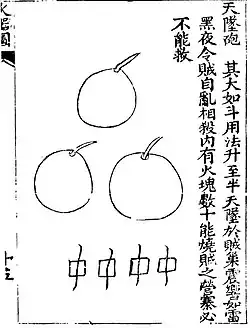 天墜砲 其大如斗用法升至半天墜於賊巢震響如雷
黑夜令賊自亂相殺內有火塊數十能燒賊之營寨必
不能救
中中中中